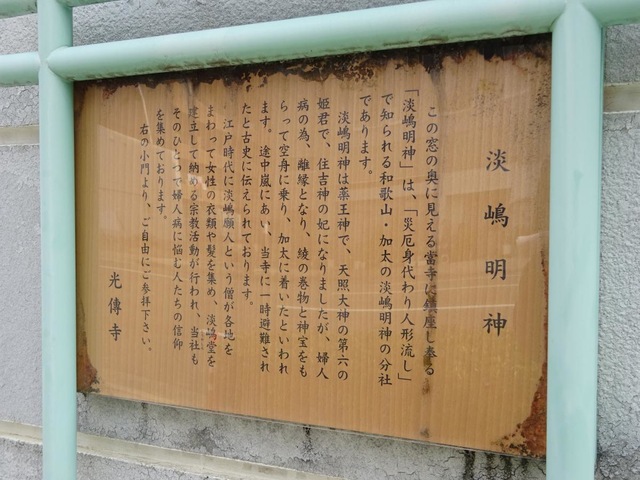 淡嶋明神
この窓の奥に見える當寺に鎮座し奉る
「淡嶋明神」は、「災厄身代わり人形流し」
で知られる和歌山・加太の淡嶋明神の分社
であります。
淡嶋明神は薬王神で、天照大神の第六の
姫君で、住吉神の妃になりましたが、婦人
病の為、離縁となり、綾の巻物と神宝をも
らって空舟に乗り、加太に着いたといわれ
ます。途中嵐にあい、当寺に一時避難され
たと古史に伝えられております。
江戸時代に淡嶋願人という僧が各地を
まわって女性の衣類や髪を集め、淡嶋堂を
建立して納める宗教活動が行われ、当社も
そのひとつで婦人病に悩む人たちの信仰
を集めております。
右の小門より、ご自由にご参拝下さい。
光傳寺